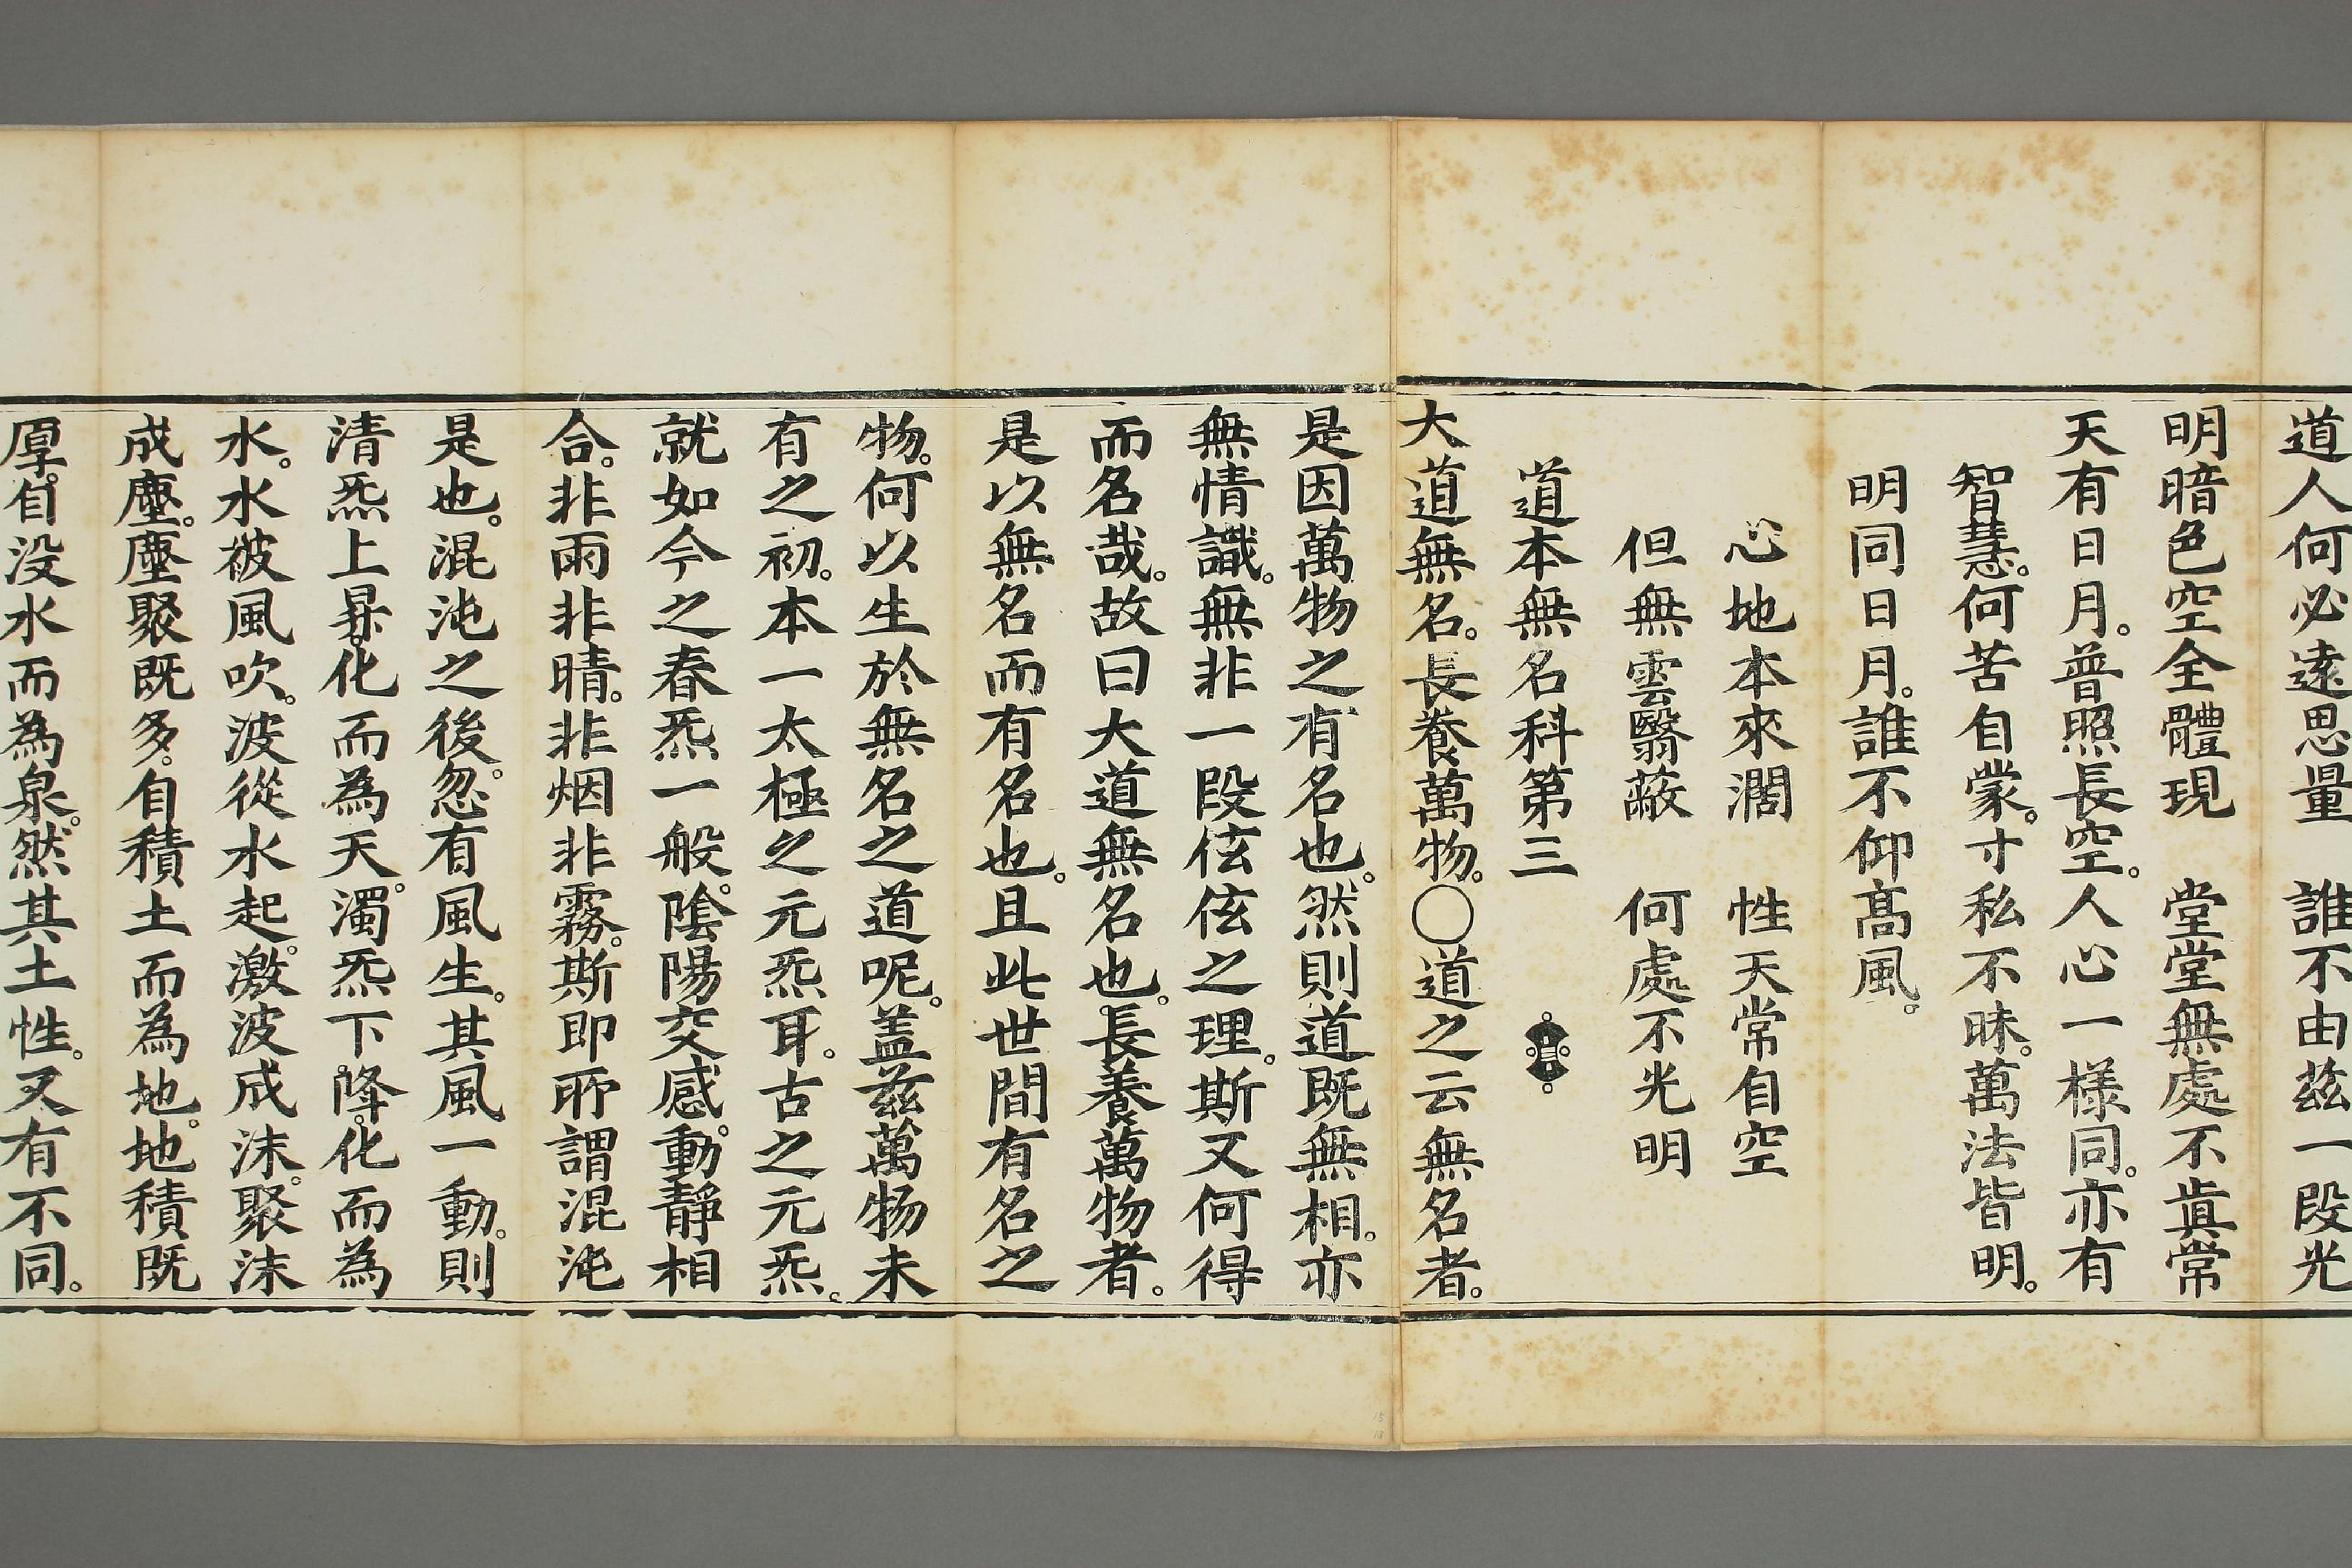 道人何必遠思量　誰不由茲一段光
明暗色空全體現　堂堂無處不眞常
天有日月。普照長空。人心一樣同。亦有
智慧。何苦自蒙。寸私不昧。萬法皆明。
明同日月。誰不仰髙風。
心地本來濶　性天常自空
但無雲翳蔽　何處不光明
道本無名科第三
大道無名。長養萬物。〇道之云無名者。
是因萬物之有名也。然則道既無相。亦
無情識。無非一段伭伭之理。斯又何得
而名哉。故曰大道無名也。長養萬物者。
是以無名而有名也。且此世間有名之
物。何以生於無名之道呢。盖茲萬物未
有之初。本一太極之元炁耳。古之元炁。
就如今之春炁一般。陰陽交感。動靜相
合。非雨非晴。非烟非霧。斯即所謂混沌
是也。混沌之後。忽有風生。其風一動。則
清炁上昇。化而為天。濁炁下降。化而為
水。水被風吹。波從水起。激波成沫。聚沫
成塵。塵聚既多。自積土而為地。地積既
厚。自没水而為泉。然其土性。又有不同。